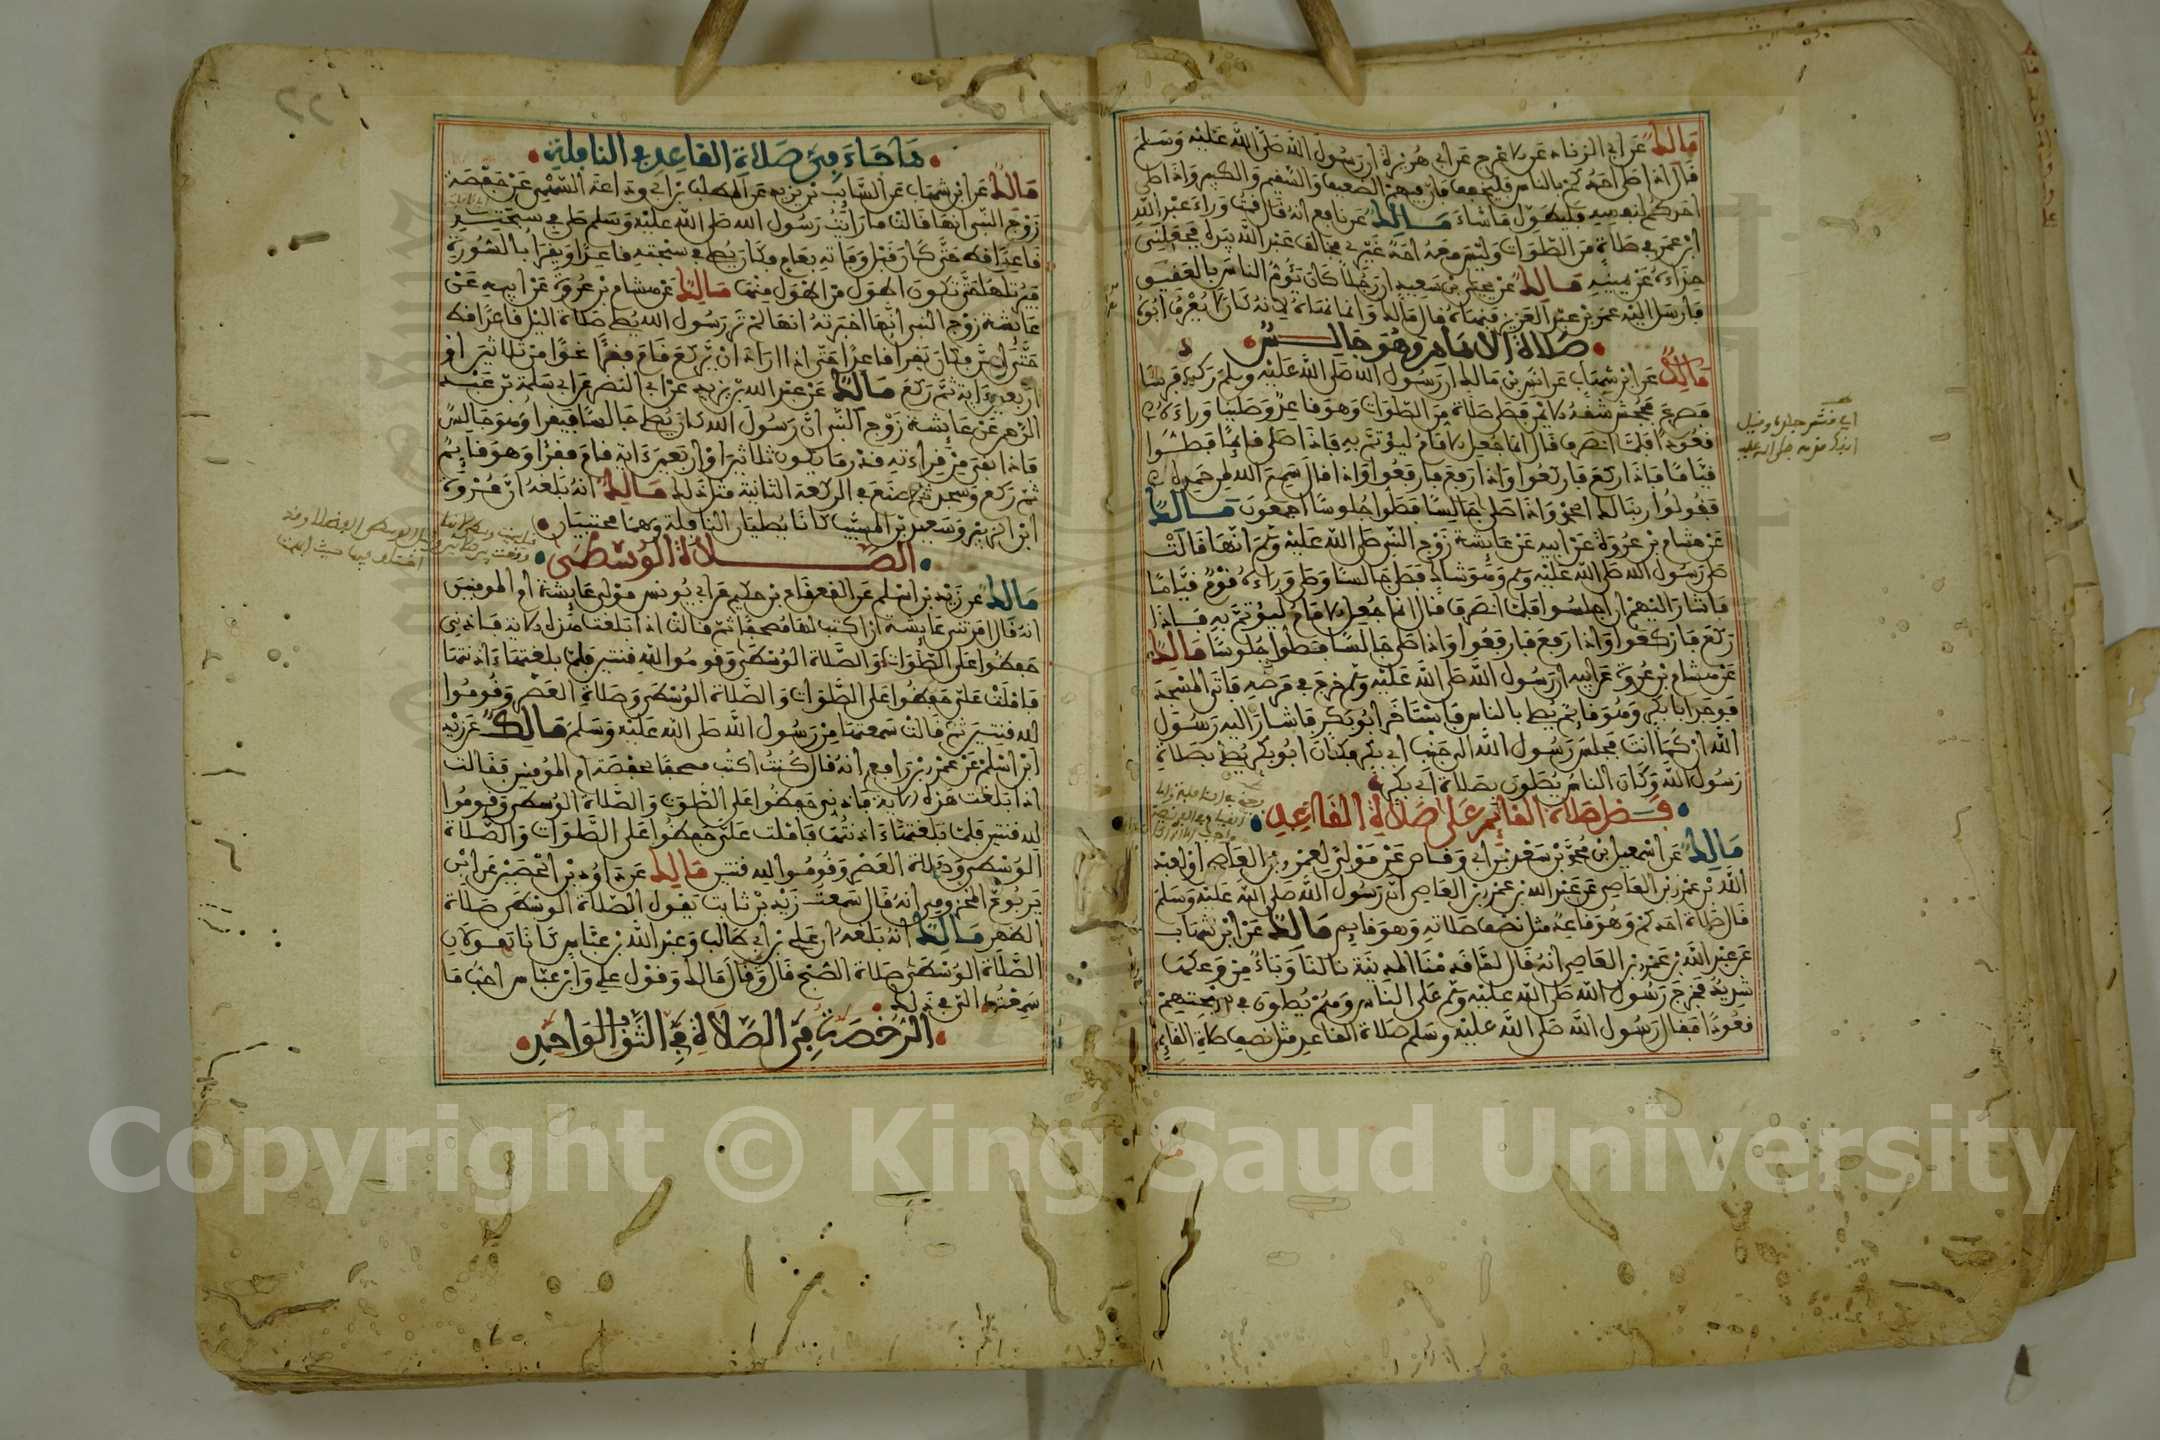 مالك عن أبي الزناد عن الاعرج عن أبي هريرة أن رسول الله صلى الله عليه وسلم
قال إذا صلى أحدكم بالناس فليخفف فإن فيهم الضعيف والسقيم والكبير وإذا صلى
أحدكم لنفسه فليطول ما شاء مالك عن نافع أنه قال قمت وراء عبد الله
ابن عمر في صلاة من الصلوات وليس معه أحد غيري فخالف عبد الله بيده فجعلني
حذاءه عن يمينه مالك عن يحيى بن سعيد أن رجلا كان يؤم الناس بالعقيق
فأرسل إليه عمر بن عبد العزيز فنهاه قال مالك وإنما نهاه لأنه كان لا يعرف أبوه
صلاة الإمام وهو جالس
مالك عن ابن شهاب عن أنس بن مالك أن رسول الله صلى الله عليه وسلم ركب فرسا
فصرع فجحش شقه الأيمن فصلى صلاة من الصلوات وهو قاعد وصلينا وراءه
قعودا فلما انصرف قال إنما جعل الإمام ليؤتم به فإذا صلى قائما فصلوا
قياما فإذا ركع فاركعوا وإذا رفع فارفعوا وإذا قال سمع الله لمن حمده
فقولوا ربنا لك الحمد وإذا صلى جالسا فصلوا جلوسا أجمعون مالك
عن هشام بن عروة عن أبيه عن عايشة زوج النبي صلى الله عليه وسلم أنها قالت
صلى رسول الله صلى الله عليه وسلم وهو شاك فصلى جالسا وصلى وراءه قوم قياما
فأشار إليهم أن اجلسوا فلما انصرف قال إنما جعل الإمام ليؤتم به فإذا
ركع فاركعوا وإذا رفع فارفعوا وإذا صلى جالسا فصلوا جلوسا مالك
عن هشام بن عروة عن أبيه أن رسول الله صلى الله عليه وسلم خرج في مرضه فأتى المسجد
فوجد أبا بكر وهو قائم يصلي بالناس فاستأخر أبو بكر فأشار إليه رسول
الله أن كما أنت فجلس رسول الله إلى جنب أبي بكر فكان أبو بكر يصلي بصلاة
رسول الله وكان الناس يصلون بصلاة أبي بكر
فضل صلاة القائم على صلاة القاعد
مالك عن إسمعيل بن محمد بن سعد بن أبي وقاص عن مولى لعمرو بن العاص أو لعبد
الله بن عمرو بن العاصي عن عبد الله بن عمرو بن العاصي أن رسول الله صلى الله عليه وسلم
قال صلاة أحدكم وهو قاعد مثل نصف صلاته وهو قايم مالك عن ابن شهاب
عن عبد الله بن عمرو بن العاصي أنه قال لما قدمنا المدينة نالنا وباء من وعكها
شديد فخرج رسول الله صلى الله عليه وسلم على الناس وهم يصلون في سبحتهم
قعودا فقال رسول الله صلى الله عليه وسلم صلاة القاعد مثل نصف صلاة القائم
ما جاء في صلاة القاعد في النافلة
مالك عن ابن شهاب عن السايب بن يزيد عن المطلب بن أبي وداعة السهمي عن حفصة
زوج النبي أنها قالت ما رأيت رسول الله صلى الله عليه وسلم صلى في سبحته
قاعدا قط حتى كان قبل وفاته بعام فكان يصلي في سبحته قاعدا ويقرأ بالسورة
فيرتلها حتى تكون أطول من أطول منها مالك عن هشام بن عروة عن أبيه عن
عايشة زوج النبي أنها أخبرته أنها لم تر رسول الله يصلي صلاة الليل قاعدا قط
حتى أسن فكان يقرأ قاعدا حتى إذا أراد أن يركع قام فقرأ نحوا من ثلاثين أو
أربعين ءاية ثم ركع مالك عن عبد الله بن يزيد عن أبي النضر عن أبي سلمة بن عبد
الرحمن عن عايشة زوج النبي أن رسول الله كان يصلي جالسا فيقرأ وهو جالس
فإذا بقي من قراءته قدر ما يكون ثلاثين أو أربعين ءاية قام فقرأ وهو قايم
ثم ركع وسجد ثم صنع في الركعة الثانية مثل ذلك مالك أنه بلغه أن عروة
ابن الزبير وسعيد بن المسيب كانا يصليان النافلة وهما محتبيان
الصلاة الوسطى
مالك عن زيد بن أسلم عن القعقاع بن حكيم عن أبي يونس مولى عايشة أم المومنين
أنه قال أمرتني عايشة أن أكتب لها مصحفا ثم قالت إذا بلغت هذه الآية فآذني
حفظوا على الصلوات والصلاة الوسطى وقوموا لله قنتين فلما بلغتها ءاذنتها
فأملت علي حفظوا على الصلوات والصلاة الوسطى وصلاة العصر وقوموا
لله قنتين ثم قالت سمعتها من رسول الله صلى الله عليه وسلم مالك عن زيد
ابن أسلم عن عمرو بن رافع أنه قال كنت أكتب مصحفا لحفصة أم المؤمنين فقالت
إذا بلغت هذه الآية فآذني حفظوا على الصلوت والصلاة الوسطى وقوموا
لله قنتين فلما بلغتها ءاذنتها فأملت علي حفظوا على الصلوات والصلاة
الوسطى وصلاة العصر وقوموا لله قنتين مالك عن داود بن الحصين عن ابن
يربوع المخزومي أنه قال سمعت زيد بن ثابت يقول الصلاة الوسطى صلاة
الظهر مالك أنه بلغه أن علي بن أبي طالب وعبد الله بن عباس كانا يقولان
الصلاة الوسطى صلاة الصبح قال وقال مالك وقول علي وابن عباس أحب ما
سمعت إلي في ذلك
الرخصة في الصلاة في الثوب الواحد
Copyright © King Saud University